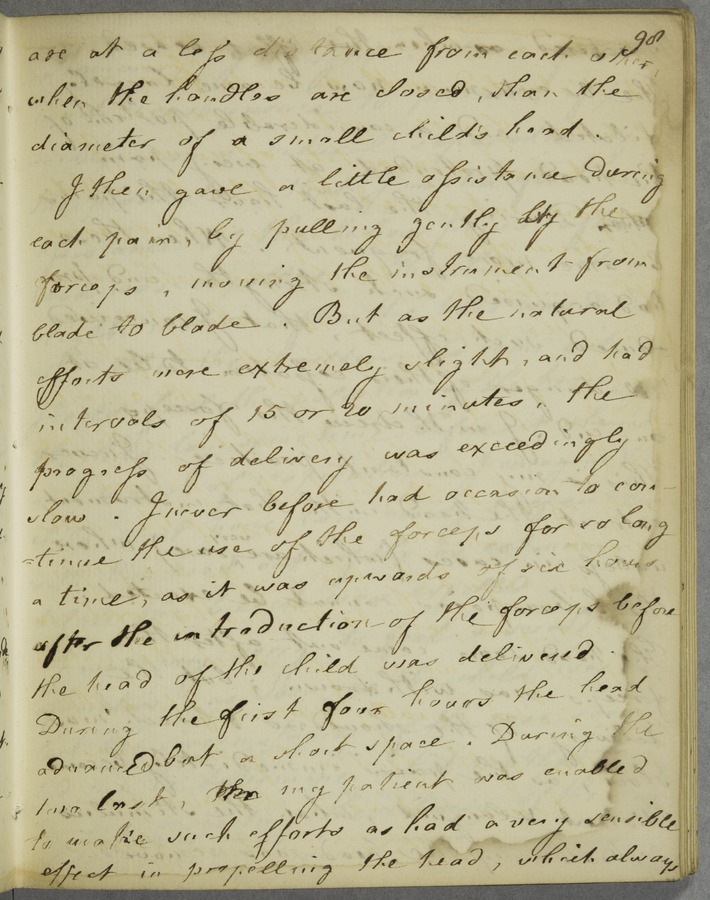 98
are at a less distance from each other,
when the handles are closed, than the
diameter of a small child's head.
I then gave a little assistance During
each pain, by pulling gently by the
forceps, moving the instrument from
blade to blade. But as the natural
efforts were extremely slight, and had
intervals of 15 or 20 minutes, the
progress of delivery was exceedingly
slow. I never before had occasion to con-
=tinue the use of the forceps for so long
a time, as it was upwards of six hours
after the introduction of the forceps before
the head of the child was delivered.
During the first four hours the head
advanced but a short space. During the
two last, my patient was enabled
to make such efforts as had a very sensible
effect in propelling the head, which always